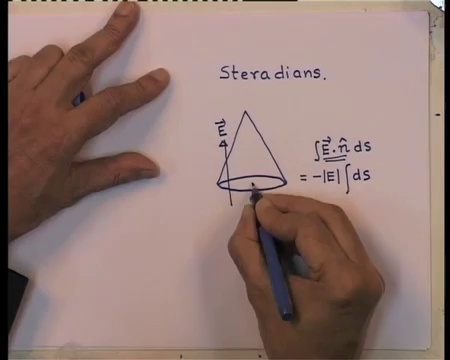 Steradians.
E⃗
∫E⃗.n̂ ds
= -|E| ∫ds